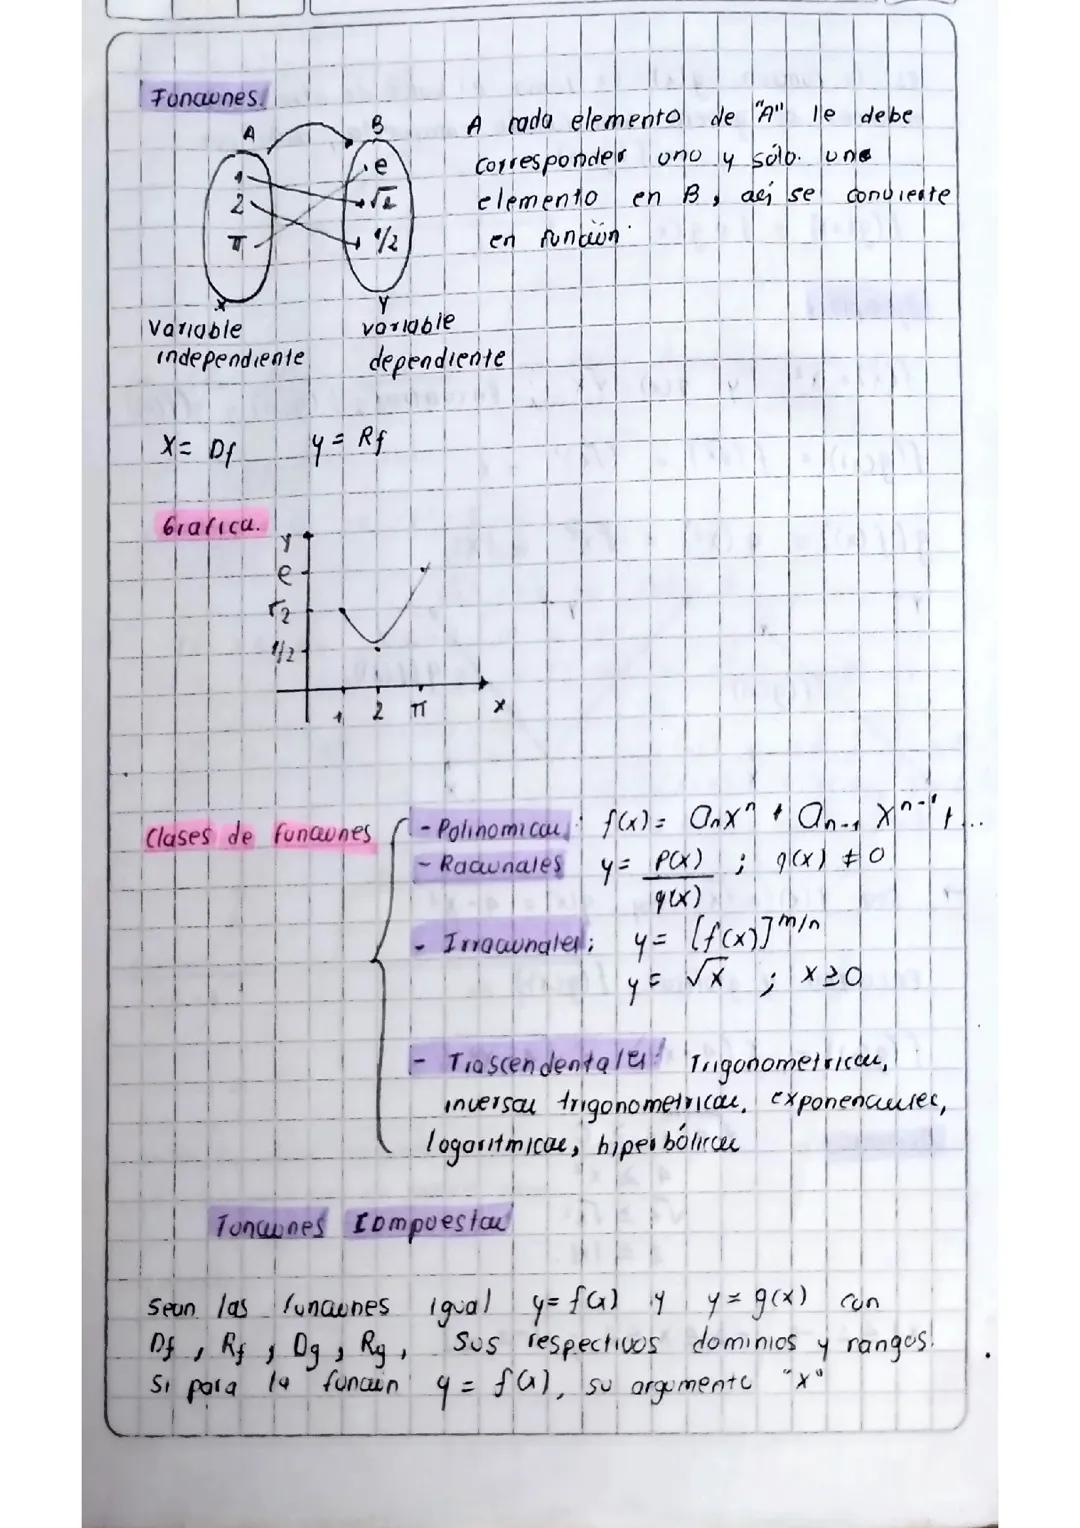 Funciones.
A B
1 e
2 √2
π 1/2
X Y
A cada elemento de "A" le debe
corresponder uno y sólo uno
elemento en B, así se convierte
en función.
Variable
independiente
variable
dependiente
X = Df y = Rf
Grafica.
y
e
√2
1/2
1 2 π x
Clases de funciones
- Polinomicas: f(x) = aₙxⁿ + aₙ₋₁ xⁿ⁻¹ + ...
- Racionales y = P(x)/q(x) ; q(x) ≠ 0
- Irracionales; y = [f(x)]^m/n
y = √x ; x ≥ 0
- Trascendentales: Trigonometricas,
inversas trigonometricas, exponenciales,
logaritmicas, hiperbólicas
Funciones Compuestas
Sean las funciones igual y = f(x) y y = g(x) con
Df, Rf, Dg, Rg, sus respectivos dominios y rangos.
Si para la función y = f(x), su argumento "x"